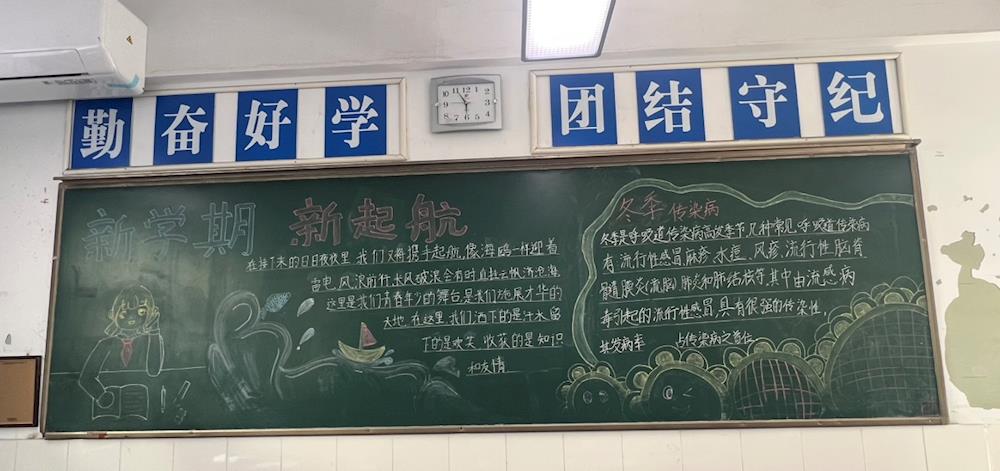 勤奋好学
团结守纪
新学期 新起航
在接下来的日日夜夜里,我们又将携手起航,像海鸥一样迎着
雷电、风浪前行,长风破浪会有时,直挂云帆济沧海
这里是我们青春年少的舞台,是我们施展才华的
天地,在这里,我们洒下的是汗水,留
下的是欢笑,收获的是知识
和友情
冬季传染病
冬季是呼吸道传染病高发季节,几种常见呼吸道传染病
有:流行性感冒、麻疹、水痘、风疹、流行性脑脊
髓膜炎(流脑)肺炎和肺结核等,其中由流感病
毒引起的流行性感冒,具有很强的传染性,
其发病率 占传染病之首位